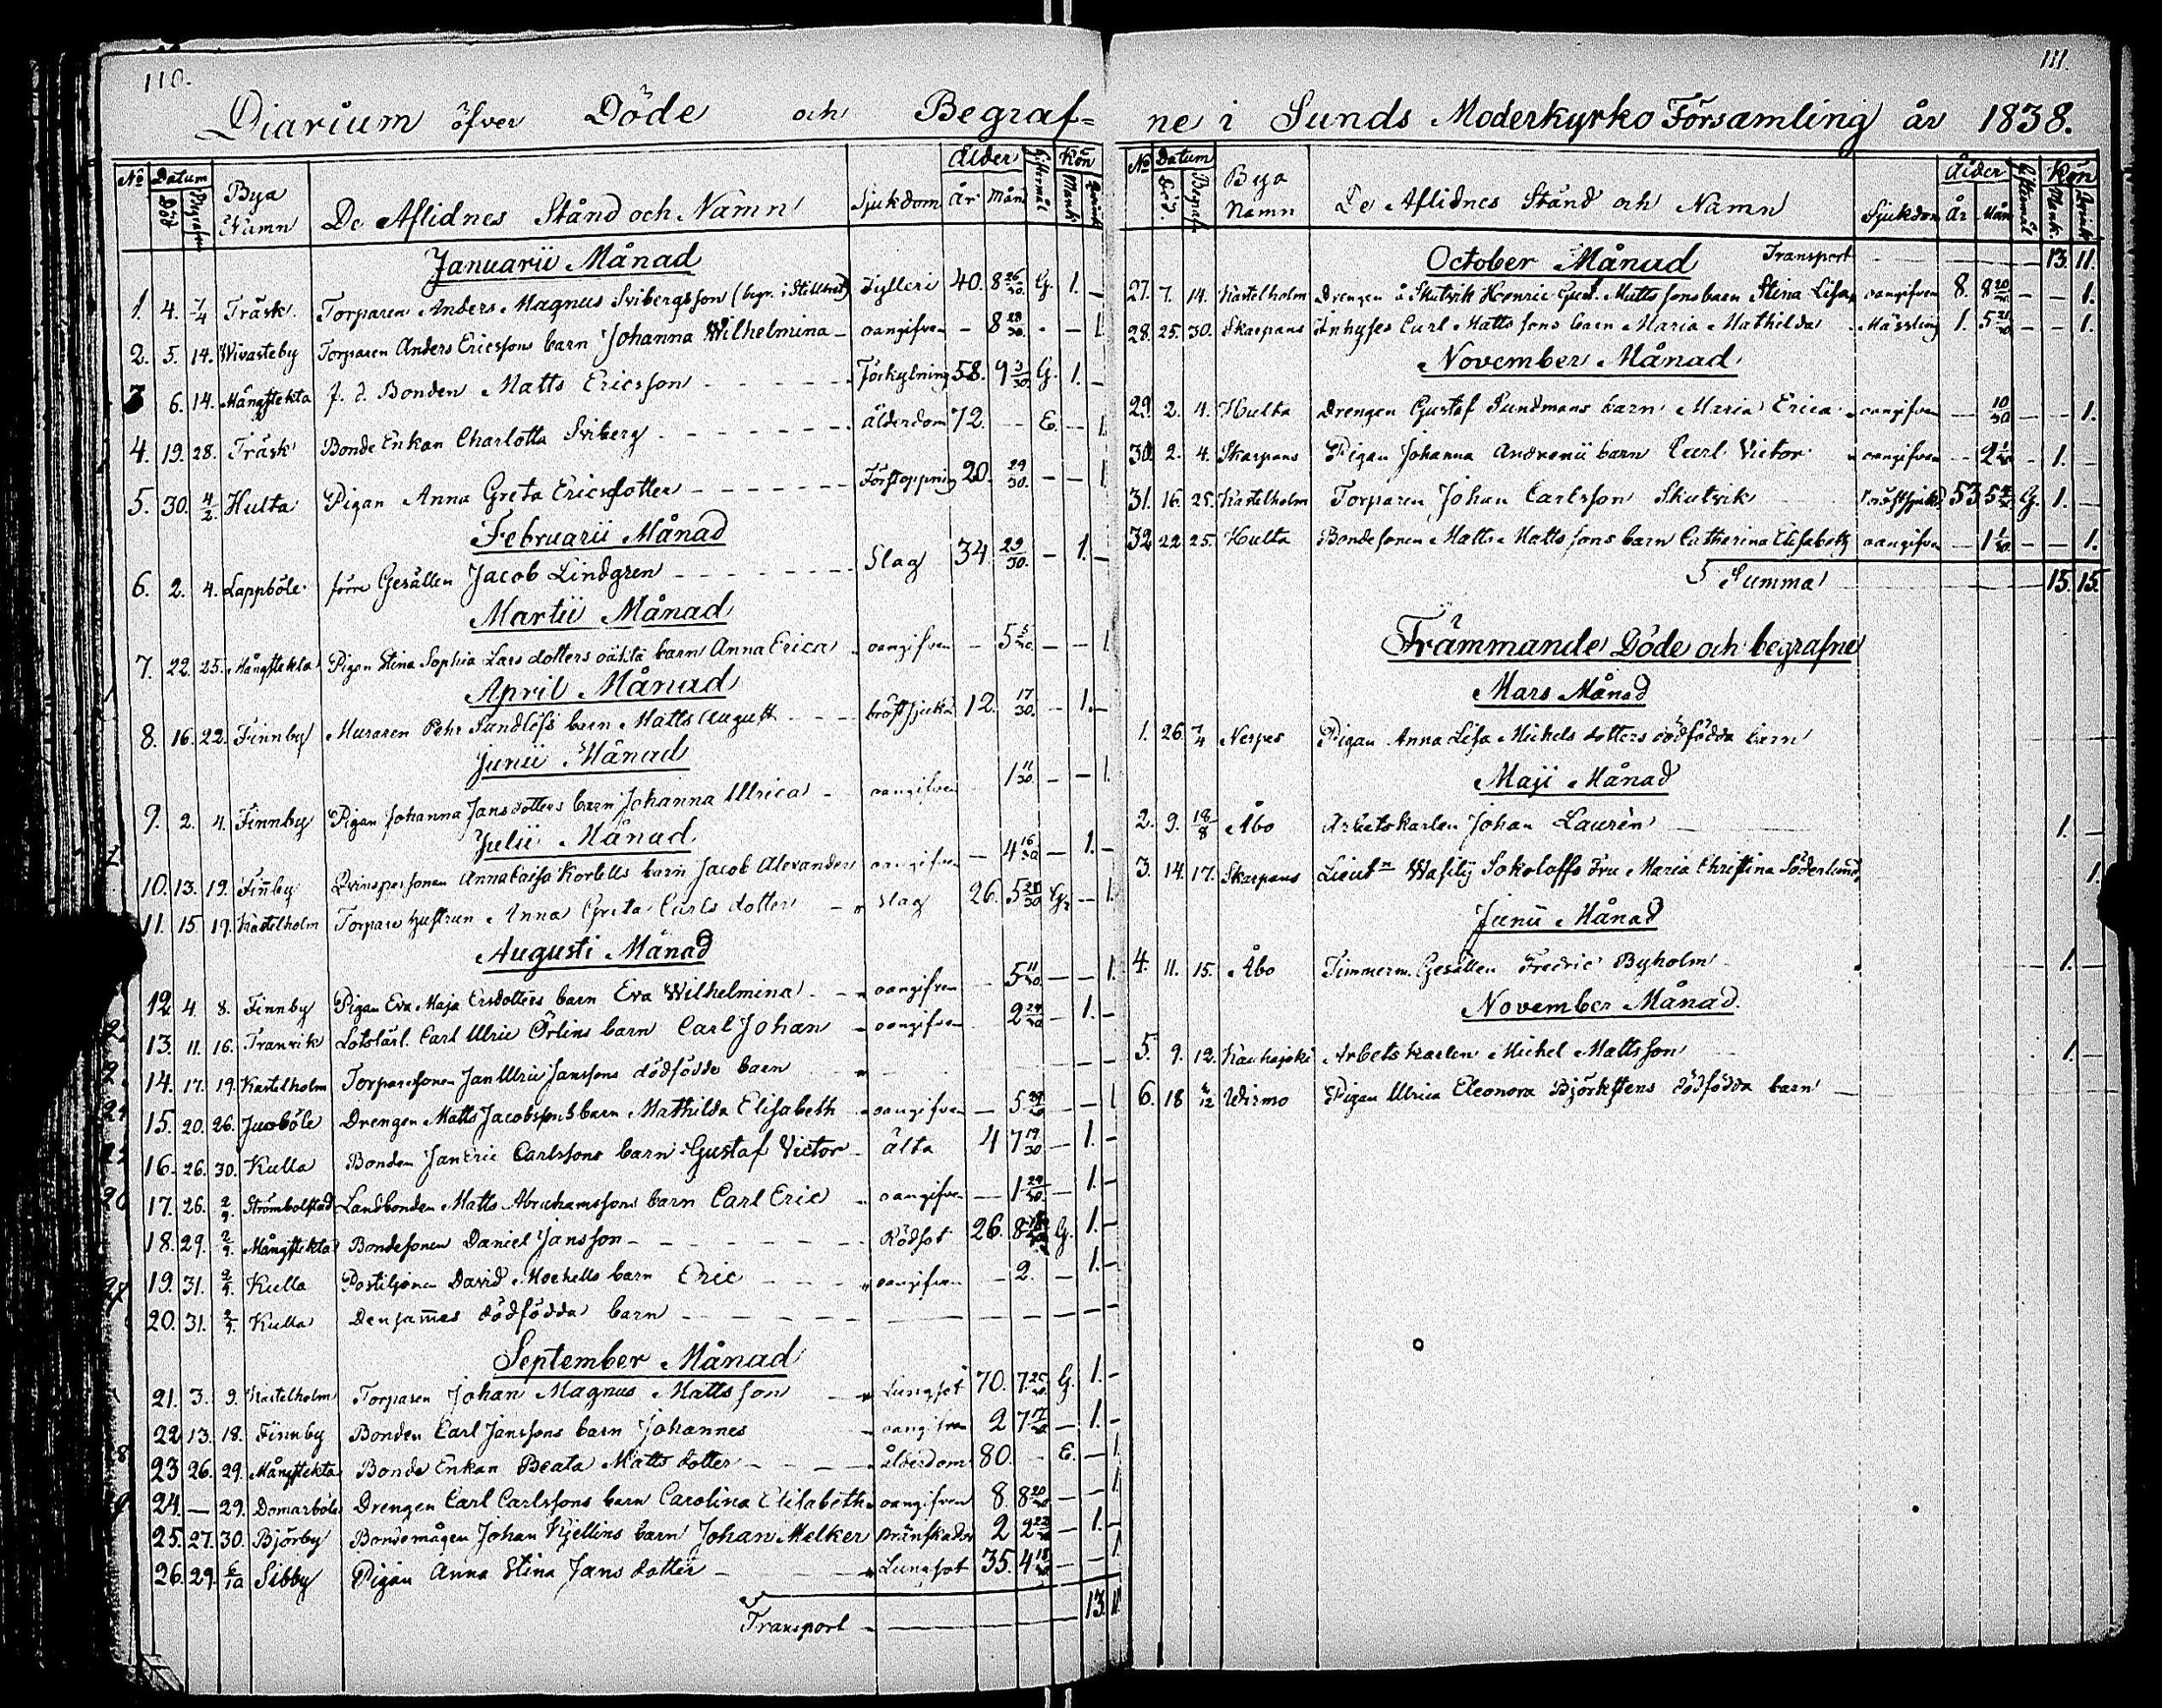 110.
Diarium öfver Döde och Begraf=
No Datum Bya Namn De Aflidnes Stånd och Namn Sjukdom Ålder Giftermål Kön
Död Begrafne År Mån Mank. Qvink.
Januarii Månad
1. 4. 7/4 Träsk. Torparen Anders Magnus Sribergsson (begr. i stillhet) Fylleri 40. 8 26/30. G. 1. –
2. 5. 14. Wivasteby Torparen Anders Ericssons barn Johanna Wilhelmina – oangifven – 8 28/30. – – 1.
3 6. 14. Mångstekta f. d. Bonden Matts Ericsson Förkylning 58. 9 3/30. G. 1. –
4. 19. 28. Träsk Bonde Enkan Charlotta Sriberg Ålderdom 72. – E. – 1.
5. 30. 4/2. Hulta Pigan Anna Greta Ericsdotter Förstoppning 20. 29/30. – – 1
Februarii Månad
6. 2. 4. Lappböle förre Gesällen Jacob Lindgren Slag 34. 29/30. – 1. –
Martii Månad
7. 22. 25. Mångstekta Pigan Stina Sophia Larsdotters oäkta barn Anna Erica oangifven – 5 5/30. – – 1
April Månad
8. 16. 22. Finnby Muraren Pehr Sundlöfs barn Matts August bröstsjuka 12. 17/30. – 1. –
Junii Månad
9. 2. 4. Finnby Pigan Johanna Jansdotters barn Johanna Ulrica – oangifven 1 11/30. – – 1.
Julii Månad
10. 13. 19. Finby Qvinspersonen Anna Caisa Korbells barn Jacob Alexander oangifven – 4 16/30 – 1. –
11. 15. 19. Kastelholm Torpare hustrun Anna Greta Carls dotter – Slag 26. 5 28/30 G. – 1.
Augusti Månad
12 4. 8. Finnby Pigan Eva Maja Ersdotters barn Eva Wilhelmina – oangifven – 5 11/30. – – 1.
13. 11. 16. Tranvik Lotslärl. Carl Ulric Örlins barn Carl Johan – oangifven 2 24/30 – 1. –
14. 17. 19. Kastelholm Torparesonen Jan Ulric Janssons dödfödde barn
15. 20. 26. Jussböle Drengen Matts Jacobssons barn Mathilda Elisabeth oangifven – 5 – – 1
16. 26. 30. Kulla Bonden Jan Eric Carlssons barn Gustaf Victor – älta 4 7 19/30 – 1. –
17. 26. 2/9. Strömbolstad Landbonden Matts Abrahamssons barn Carl Eric oangifven – 1 29/30. – 1. –
18. 29. 2/9. Mångstekta Bondesonen Daniel Jansson – Rödsot 26. 8 G. 1. –
19. 31. 2/9. Kulla Postiljonen David Mochells barn Eric oangifven – 2. – 1. –
20. 31. 2/9. Kulla Densammes dödfödda barn
September Månad
21. 3. 9. Kastelholm Torparen Johan Magnus Mattsson Lungsot 70. 7 25/30. G. 1. –
22 13. 18. Finnby Bonden Carl Janssons barn Johannes oangifven 2 7 17/30 – 1. –
23 26. 29. Mångstekta Bonde Enkan Beata Matts dotter Ålderdom 80. – E. – 1.
24. – 29. Domarböle Drengen Carl Carlssons barn Carolina Elisabeth oangifven 8. 8 20/30 – – 1
25. 27. 30. Björby Bondemågen Johan Kjellins barn Johan Melker brännskador 2 2 22/30 – 1. –
26. 29. 6/10 Sibby Pigan Anna Stina Jans dotter Lungsot 35. 4 18/30 – – 1.
Transport 13. 11
111.
ne i Sunds Moderkyrko Församling år 1838.
No Datum Bya Namn De Aflidnes Stånd och Namn Sjukdom Ålder Giftermål Kön
Död. Begraf. År Mån Mank. Qvink.
October Månad Transport 13. 11.
27. 7. 14. Kastelholm Drengen å Skutvik Henric Gust. Mattssons barn Stina Lisa oangifven 8. 8 20/30 – – 1.
28. 25. 30. Skarpans Inhyses Carl Mattssons barn Maria Mathilda Mässling 1. 5 21/30 – – 1.
November Månad
29. 2. 4. Hulta Drengen Gustaf Sundmans barn Maria Erica oangifven – 10/30 – – 1.
30. 2. 4. Skarpans Pigan Johanna Andrenii barn Carl Victor oangifven – 2 – 1. –
31. 16. 25. Kastelholm Torparen Johan Carlsson Skutvik Bröstsjuka 53 5 G. 1. –
32 22 25. Hulta Bondesonen Matts Mattssons barn Catharina Elisabeth oangifven – 1 – – 1.
Summa 15. 15.
Främmande Döde och begrafne
Mars Månad
1. 26. 7/4 Nerpes Pigan Anna Lisa Michels dotters dödfödda barn
Maji Månad
2. 9. 18/8 Åbo Arbetskarlen Johan Laurèn 1. –
3. 14. 17. Skarpans Lieutn Wasilij Sokoloffs Fru Maria Christina Söderlund 1.
Junii Månad
4. 11. 15. Åbo Timmerm. Gesällen Fredric Byholm 1. –
November Månad.
5. 9. 12. Kauhajoki Arbetskarlen Michel Mattsson 1. –
6. 18 2/12 Wirmo Pigan Ulrica Eleonora Björkstens dödfödda barn –